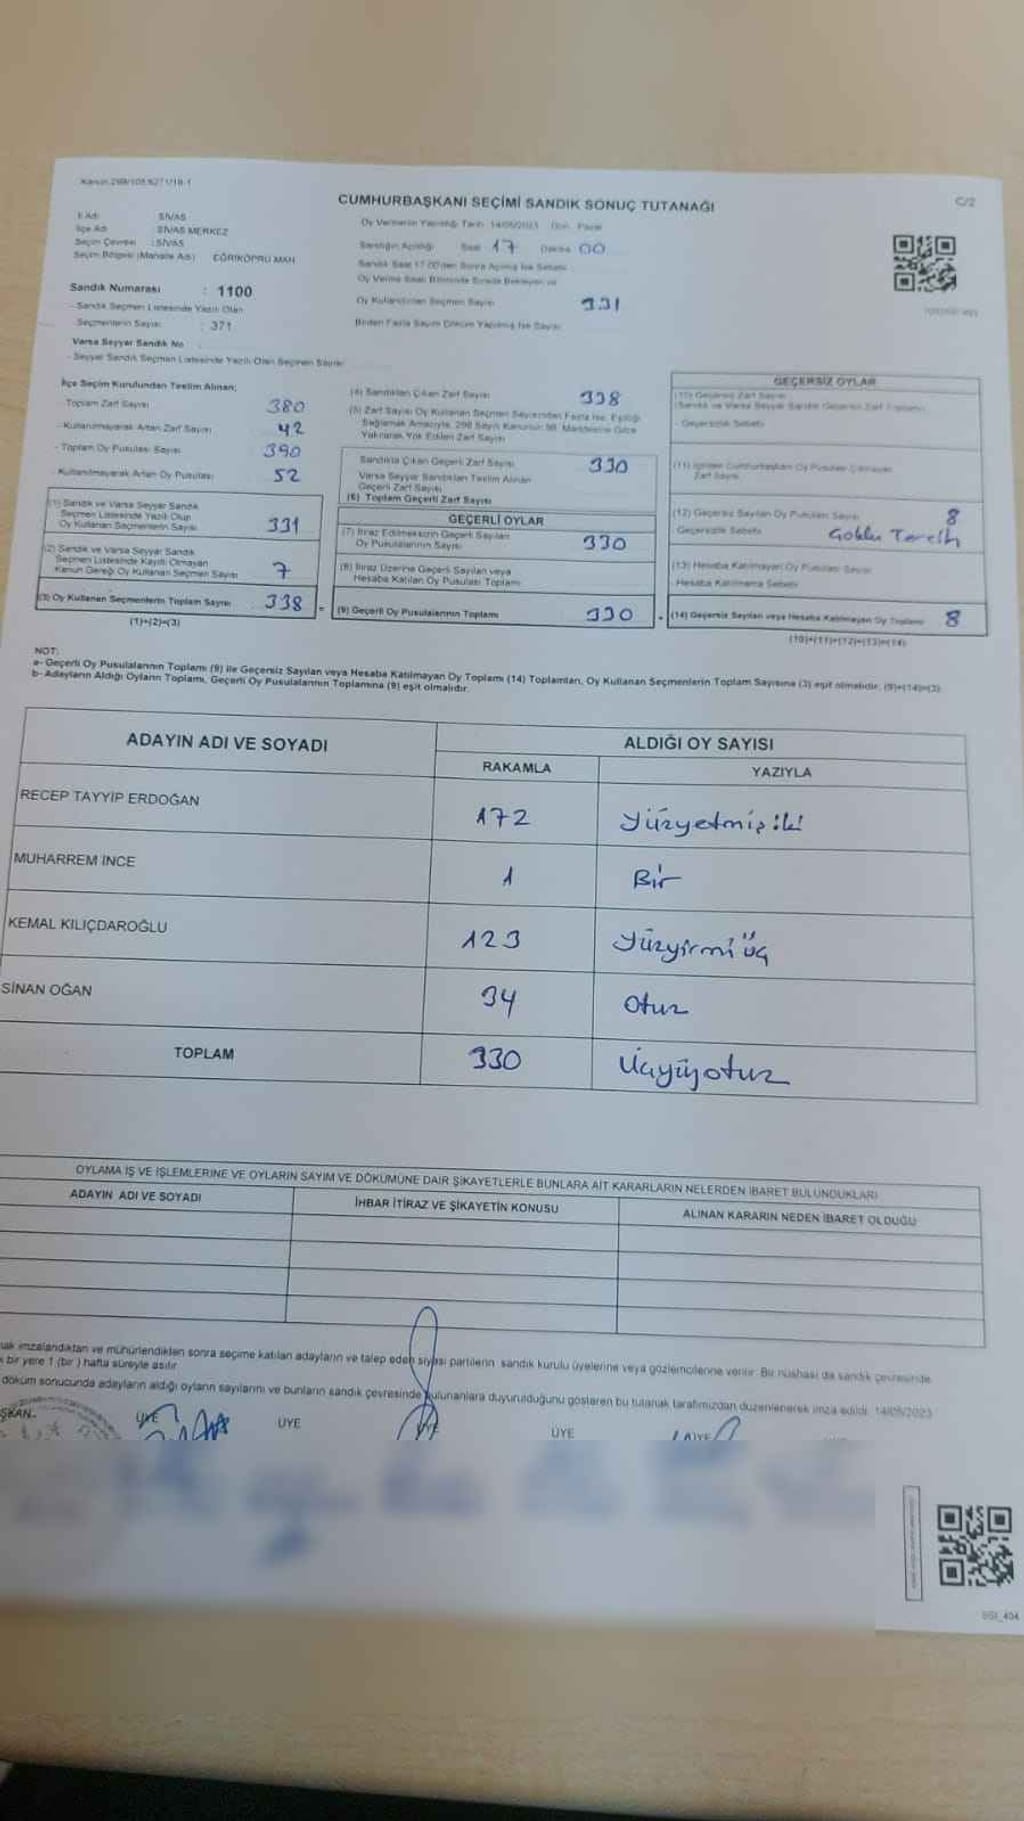 Kanun:298/105,6271/18-1
CUMHURBAŞKANI SEÇİMİ SANDIK SONUÇ TUTANAĞI
C/2
İl Adı SİVAS
İlçe Adı SİVAS MERKEZ
Seçim Çevresi : SİVAS
Seçim Bölgesi (Mahalle Adı) EĞRİKÖPRÜ MAH.
Oy Vermenin Yapıldığı Tarih 14/05/2023 Gün Pazar
Sandığın Açıldığı Saat 17 Dakika 00
Sandık Saat 17:00'den Sonra Açılmış İse Sebebi
Sandık Numarası : 1100
Oy Kullandırılan Seçmen Sayısı 331
- Sandık Seçmen Listesinde Yazılı Olan
Seçmenlerin Sayısı : 371
Birden Fazla Sayım Döküm Yapılmış İse Sayısı
Varsa Seyyar Sandık No
- Seyyar Sandık Seçmen Listesinde Yazılı Olan Seçmen Sayısı
İlçe Seçim Kurulundan Teslim Alınan;
- Toplam Zarf Sayısı 380
- Kullanılmayarak Artan Zarf Sayısı 42
- Toplam Oy Pusulası Sayısı 390
- Kullanılmayarak Artan Oy Pusulası 52
(1) Sandık ve Varsa Seyyar Sandık
Seçmen Listesinde Yazılı Olup
Oy Kullanan Seçmenlerin Sayısı 331
(2) Sandık ve Varsa Seyyar Sandık
Seçmen Listesinde Kayıtlı Olmayan
Kanun Gereği Oy Kullanan Seçmen Sayısı 7
(3) Oy Kullanan Seçmenlerin Toplam Sayısı 338 =
(1)+(2)=(3)
(4) Sandıktan Çıkan Zarf Sayısı 338
(5) Zarf Sayısı Oy Kullanan Seçmen Sayısından Fazla İse, Eşitliği
Sağlamak Amacıyla, 298 Sayılı Kanunun 98. Maddesine Göre
Yakılarak Yok Edilen Zarf Sayısı
Sandıkta Çıkan Geçerli Zarf Sayısı 330
Varsa Seyyar Sandıktan Teslim Alınan
Geçerli Zarf Sayısı
(6) Toplam Geçerli Zarf Sayısı
GEÇERLİ OYLAR
(7) İtiraz Edilmeksizin Geçerli Sayılan
Oy Pusulalarının Sayısı 330
(8) İtiraz Üzerine Geçerli Sayılan veya
Hesaba Katılan Oy Pusulası Toplamı
(9) Geçerli Oy Pusulalarının Toplamı 330
GEÇERSİZ OYLAR
(10) Geçersiz Zarf Sayısı
- Geçersizlik Sebebi
Zarf Sayısı
(12) Geçersiz Sayılan Oy Pusulası Sayısı 8
Geçersizlik Sebebi Çoklu Tercih
(13) Hesaba Katılmayan Oy Pusulası Sayısı
- Hesaba Katılmama Sebebi
(14) Geçersiz Sayılan veya Hesaba Katılmayan Oy Toplamı 8
(10)+(11)+(12)+(13)=(14)
NOT:
a- Geçerli Oy Pusulalarının Toplamı (9) ile Geçersiz Sayılan veya Hesaba Katılmayan Oy Toplamı (14) Toplamları, Oy Kullanan Seçmenlerin Toplam Sayısına (3) eşit olmalıdır. (9)+(14)=(3)
b- Adayların Aldığı Oyların Toplamı, Geçerli Oy Pusulalarının Toplamına (9) eşit olmalıdır.
ADAYIN ADI VE SOYADI
ALDIĞI OY SAYISI
RAKAMLA YAZIYLA
RECEP TAYYİP ERDOĞAN 172 Yüzyetmişiki
MUHARREM İNCE 1 Bir
KEMAL KILIÇDAROĞLU 123 Yüzyirmi üç
SİNAN OĞAN 34 Otuz
TOPLAM 330 Üçyüzotuz
OYLAMA İŞ VE İŞLEMLERİNE VE OYLARIN SAYIM VE DÖKÜMÜNE DAİR ŞİKAYETLERLE BUNLARA AİT KARARLARIN NELERDEN İBARET BULUNDUKLARI
ADAYIN ADI VE SOYADI İHBAR İTİRAZ VE ŞİKAYETİN KONUSU ALINAN KARARIN NEDEN İBARET OLDUĞU
imzalandıktan ve mühürlendikten sonra seçime katılan adayların ve talep eden siyasi partilerin sandık kurulu üyelerine veya gözlemcilerine verilir. Bir nüshası da sandık çevresinde
bir yere 1 (bir) hafta süreyle asılır.
döküm sonucunda adayların aldığı oyların sayılarını ve bunların sandık çevresinde bulunanlara duyurulduğunu gösteren bu tutanak tarafımızdan düzenlenerek imza edildi. 14/05/2023
ŞKAN ÜYE ÜYE ÜYE ÜYE ÜYE